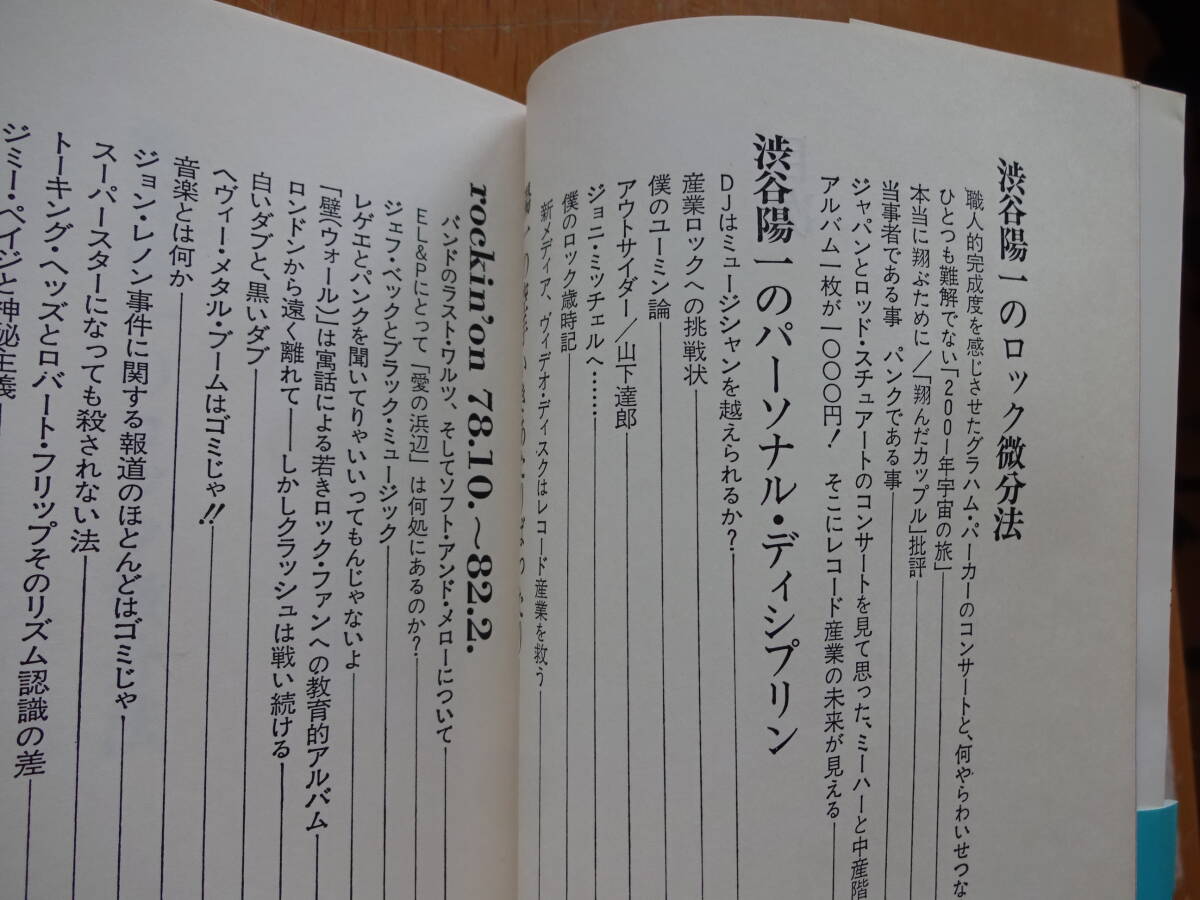 渋谷陽一のロック微分法
職人的完成度を感じさせたグラハム・パーカーのコンサートと、何やらわいせつな
ひとつも難解でない「2001年宇宙の旅」
本当に翔ぶために／「翔んだカップル」批評
当事者である事　パンクである事
ジャパンとロッド・スチュアートのコンサートを見て思った、ミーハーと中産階
アルバム一枚が一〇〇〇円！　そこにレコード産業の未来が見える
渋谷陽一のパーソナル・ディシプリン
DJはミュージシャンを越えられるか？
産業ロックへの挑戦状
僕のユーミン論
アウトサイダー／山下達郎
ジョニ・ミッチェルへ……
僕のロック歳時記
新メディア、ヴィデオ・ディスクはレコード産業を救う
rockin'on 78.10.～82.2.
バンドのラスト・ワルツ、そしてソフト・アンド・メローについて
EL&Pにとって「愛の浜辺」は何処にあるのか？
ジェフ・ベックとブラック・ミュージック
レゲエとパンクを聞いてりゃいいってもんじゃないよ
「壁（ウォール）」は寓話による若きロック・ファンへの教育的アルバム
ロンドンから遠く離れて――しかしクラッシュは戦い続ける
白いダブと、黒いダブ
ヘヴィー・メタル・ブームはゴミじゃ!!
音楽とは何か
ジョン・レノン事件に関する報道のほとんどはゴミじゃ
スーパースターになっても殺されない法
トーキング・ヘッズとロバート・フリップそのリズム認識の差
ジミー・ペイジと神秘主義